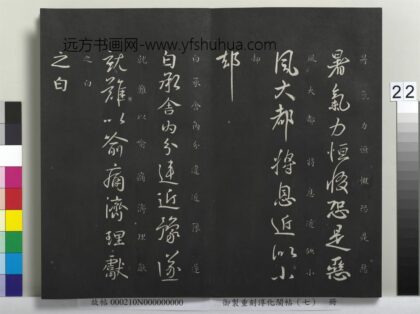 远方书画网--www.yfshuhua.com
暑氣力恒惙恐是惡
風大都將息近似小
却
白承舍內分違近豫遂
就難以喻痛濟理獻
之白
22
故帖 000210N000000000
御製重刻淳化閣帖(七) 冊